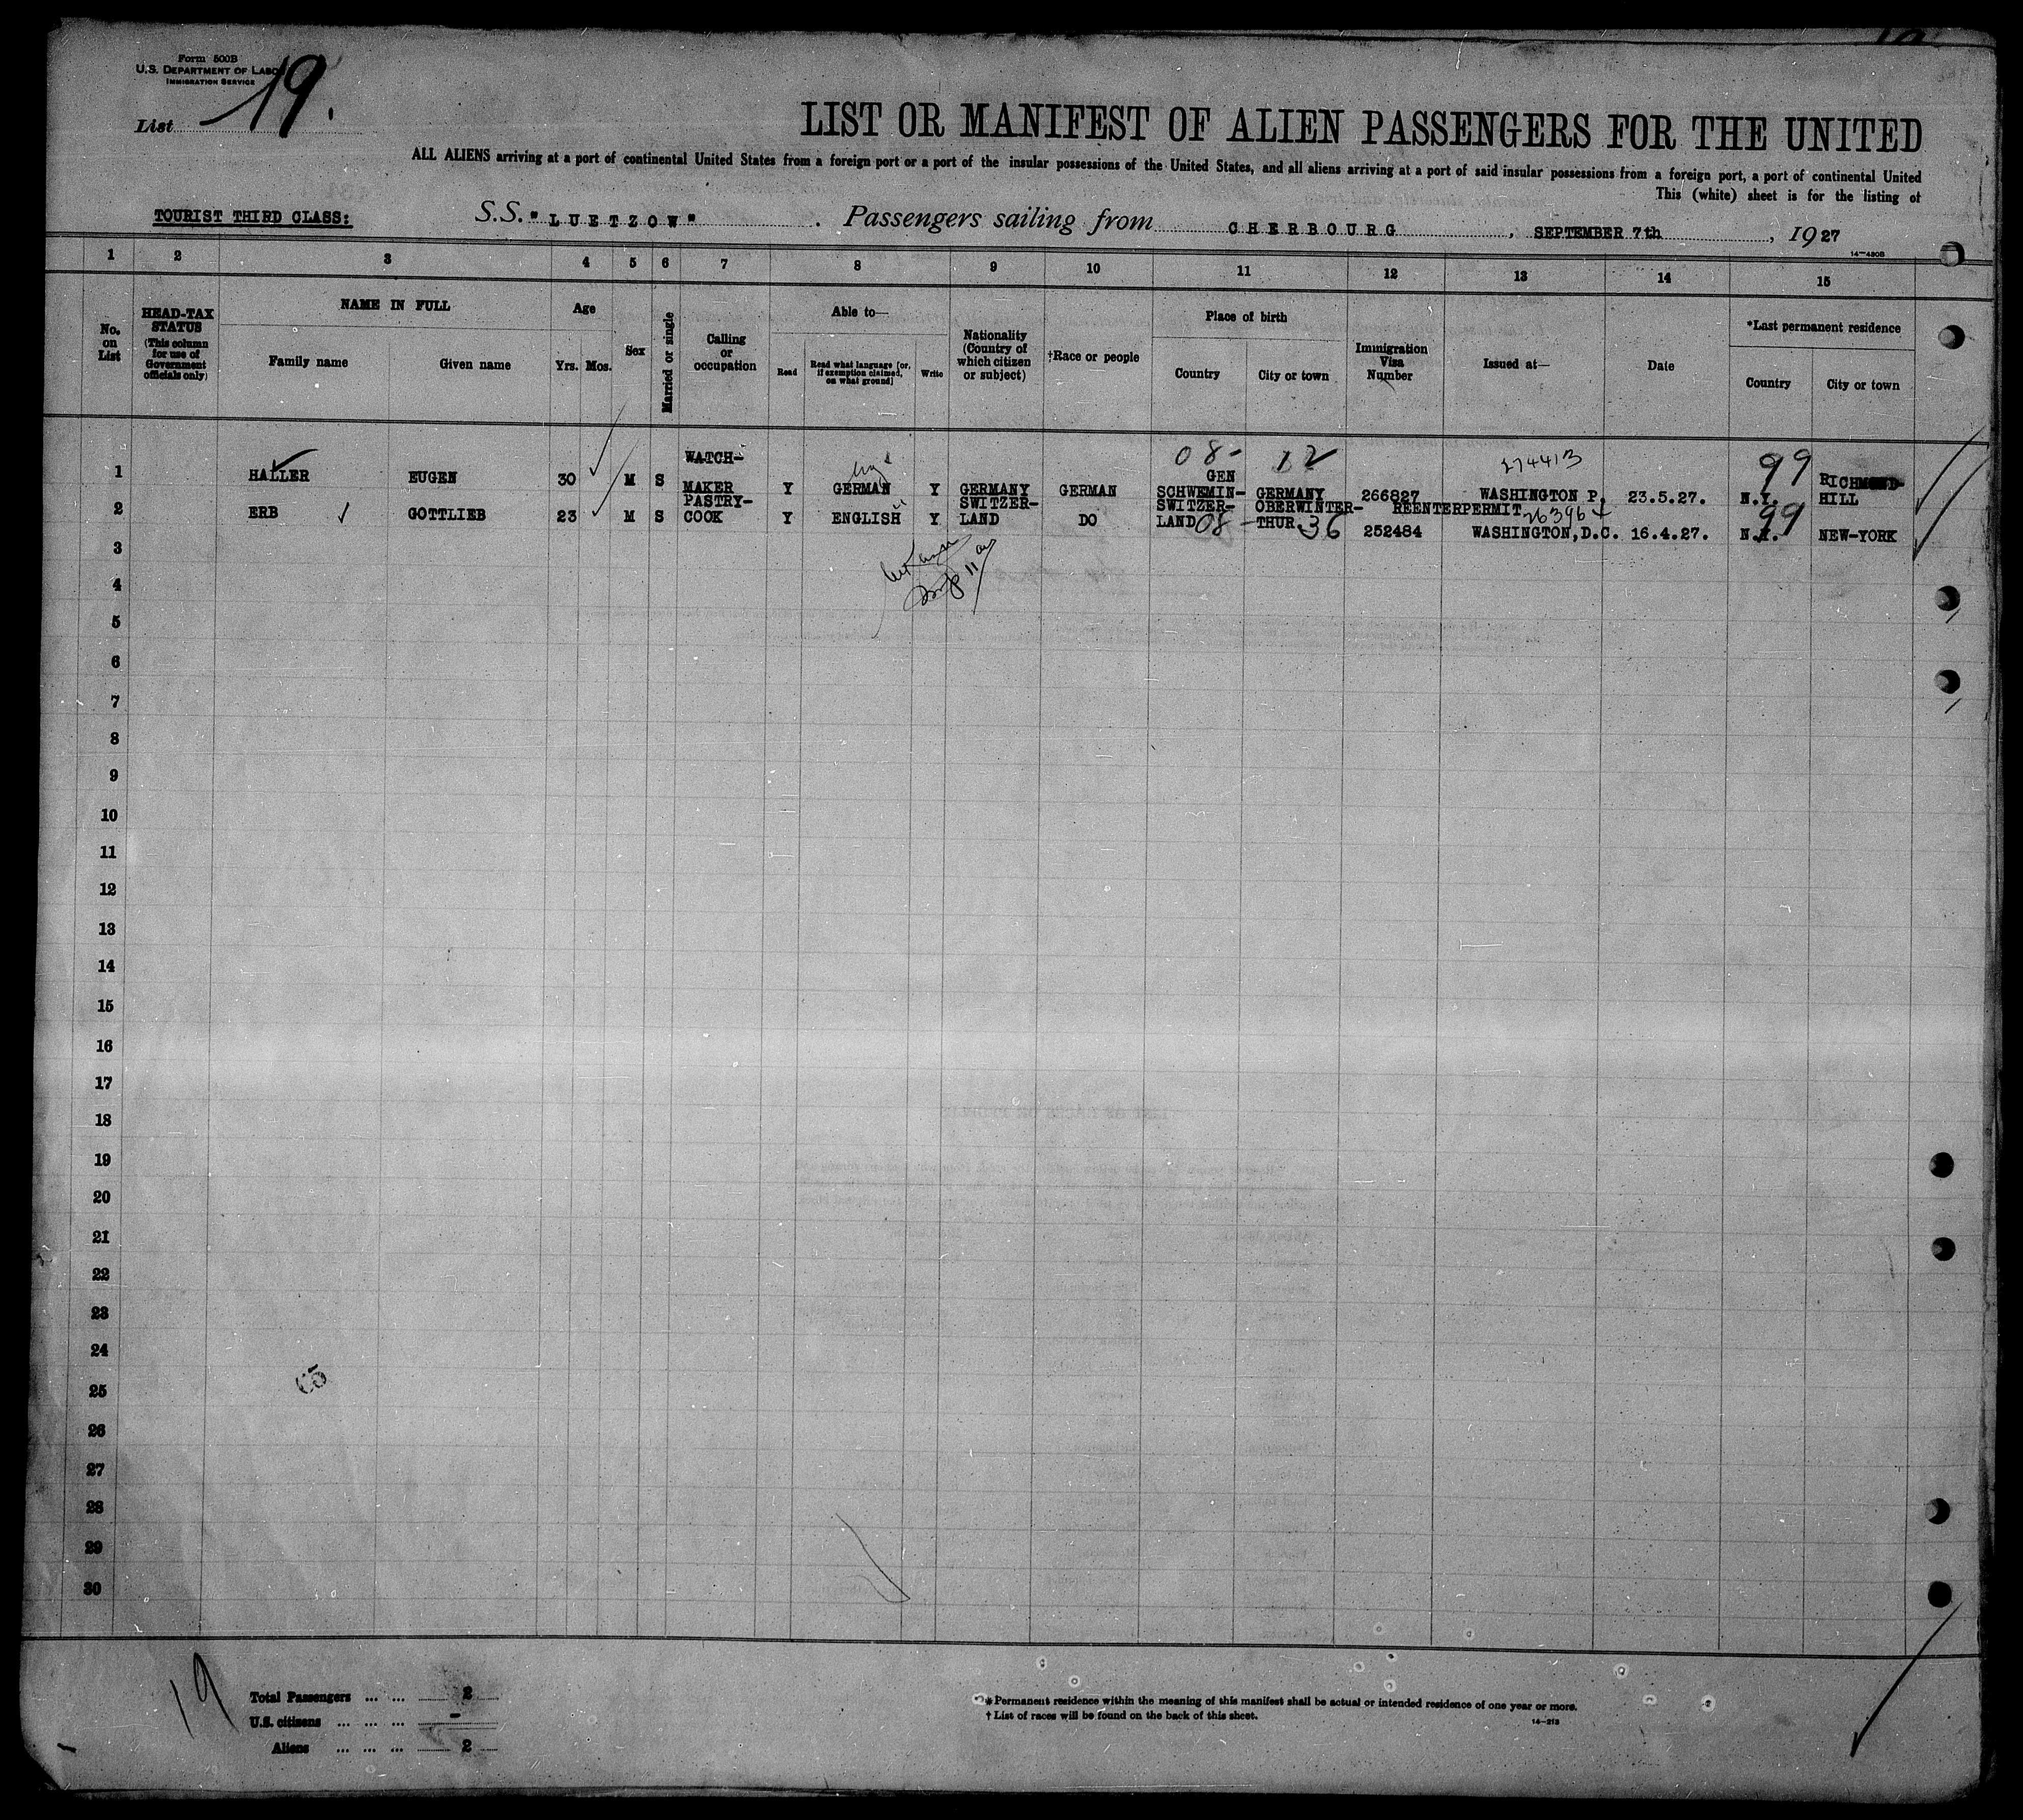 Form 500B
U.S. DEPARTMENT OF LABOR
IMMIGRATION SERVICE
List 19.
LIST OR MANIFEST OF ALIEN PASSENGERS FOR THE UNITED
ALL ALIENS arriving at a port of continental United States from a foreign port or a port of the insular possessions of the United States, and all aliens arriving at a port of said insular possessions from a foreign port, a port of continental United
This (white) sheet is for the listing of
TOURIST THIRD CLASS: S.S. "LUETZOW". Passengers sailing from CHERBOURG, SEPTEMBER 7th, 1927
14-480B
1 2 3 4 5 6 7 8 9 10 11 12 13 14 15
No. on List
HEAD-TAX STATUS (This column for use of Government officials only)
NAME IN FULL
Family name Given name
Age
Yrs. Mos.
Sex
Married or single
Calling or occupation
Able to—
Read
Read what language [or, if exemption claimed, on what ground]
Write
Nationality (Country of which citizen or subject)
†Race or people
Place of birth
Country City or town
Immigration Visa Number
Issued at—
Date
*Last permanent residence
Country City or town
08- 12 274413 99
1 HALLER EUGEN 30 M S WATCH-MAKER Y GERMAN Y GERMANY GERMAN SCHWEMIN-GEN GERMANY 266827 WASHINGTON P. 23.5.27. N.Y. RICHMOND-HILL
REENTERPERMIT 263964 99
2 ERB GOTTLIEB 23 M S PASTRY-COOK Y ENGLISH Y SWITZER-LAND DO SWITZER-LAND 08- OBERWINTER-THUR 36 252484 WASHINGTON, D.C. 16.4.27. N.Y. NEW-YORK
3
4
5
6
7
8
9
10
11
12
13
14
15
16
17
18
19
20
21
22
23
24
25
26
27
28
29
30
19
Total Passengers ... ... 2
U.S. citizens ... ... ... -
Aliens ... ... ... 2
*Permanent residence within the meaning of this manifest shall be actual or intended residence of one year or more.
† List of races will be found on the back of this sheet.
14-213